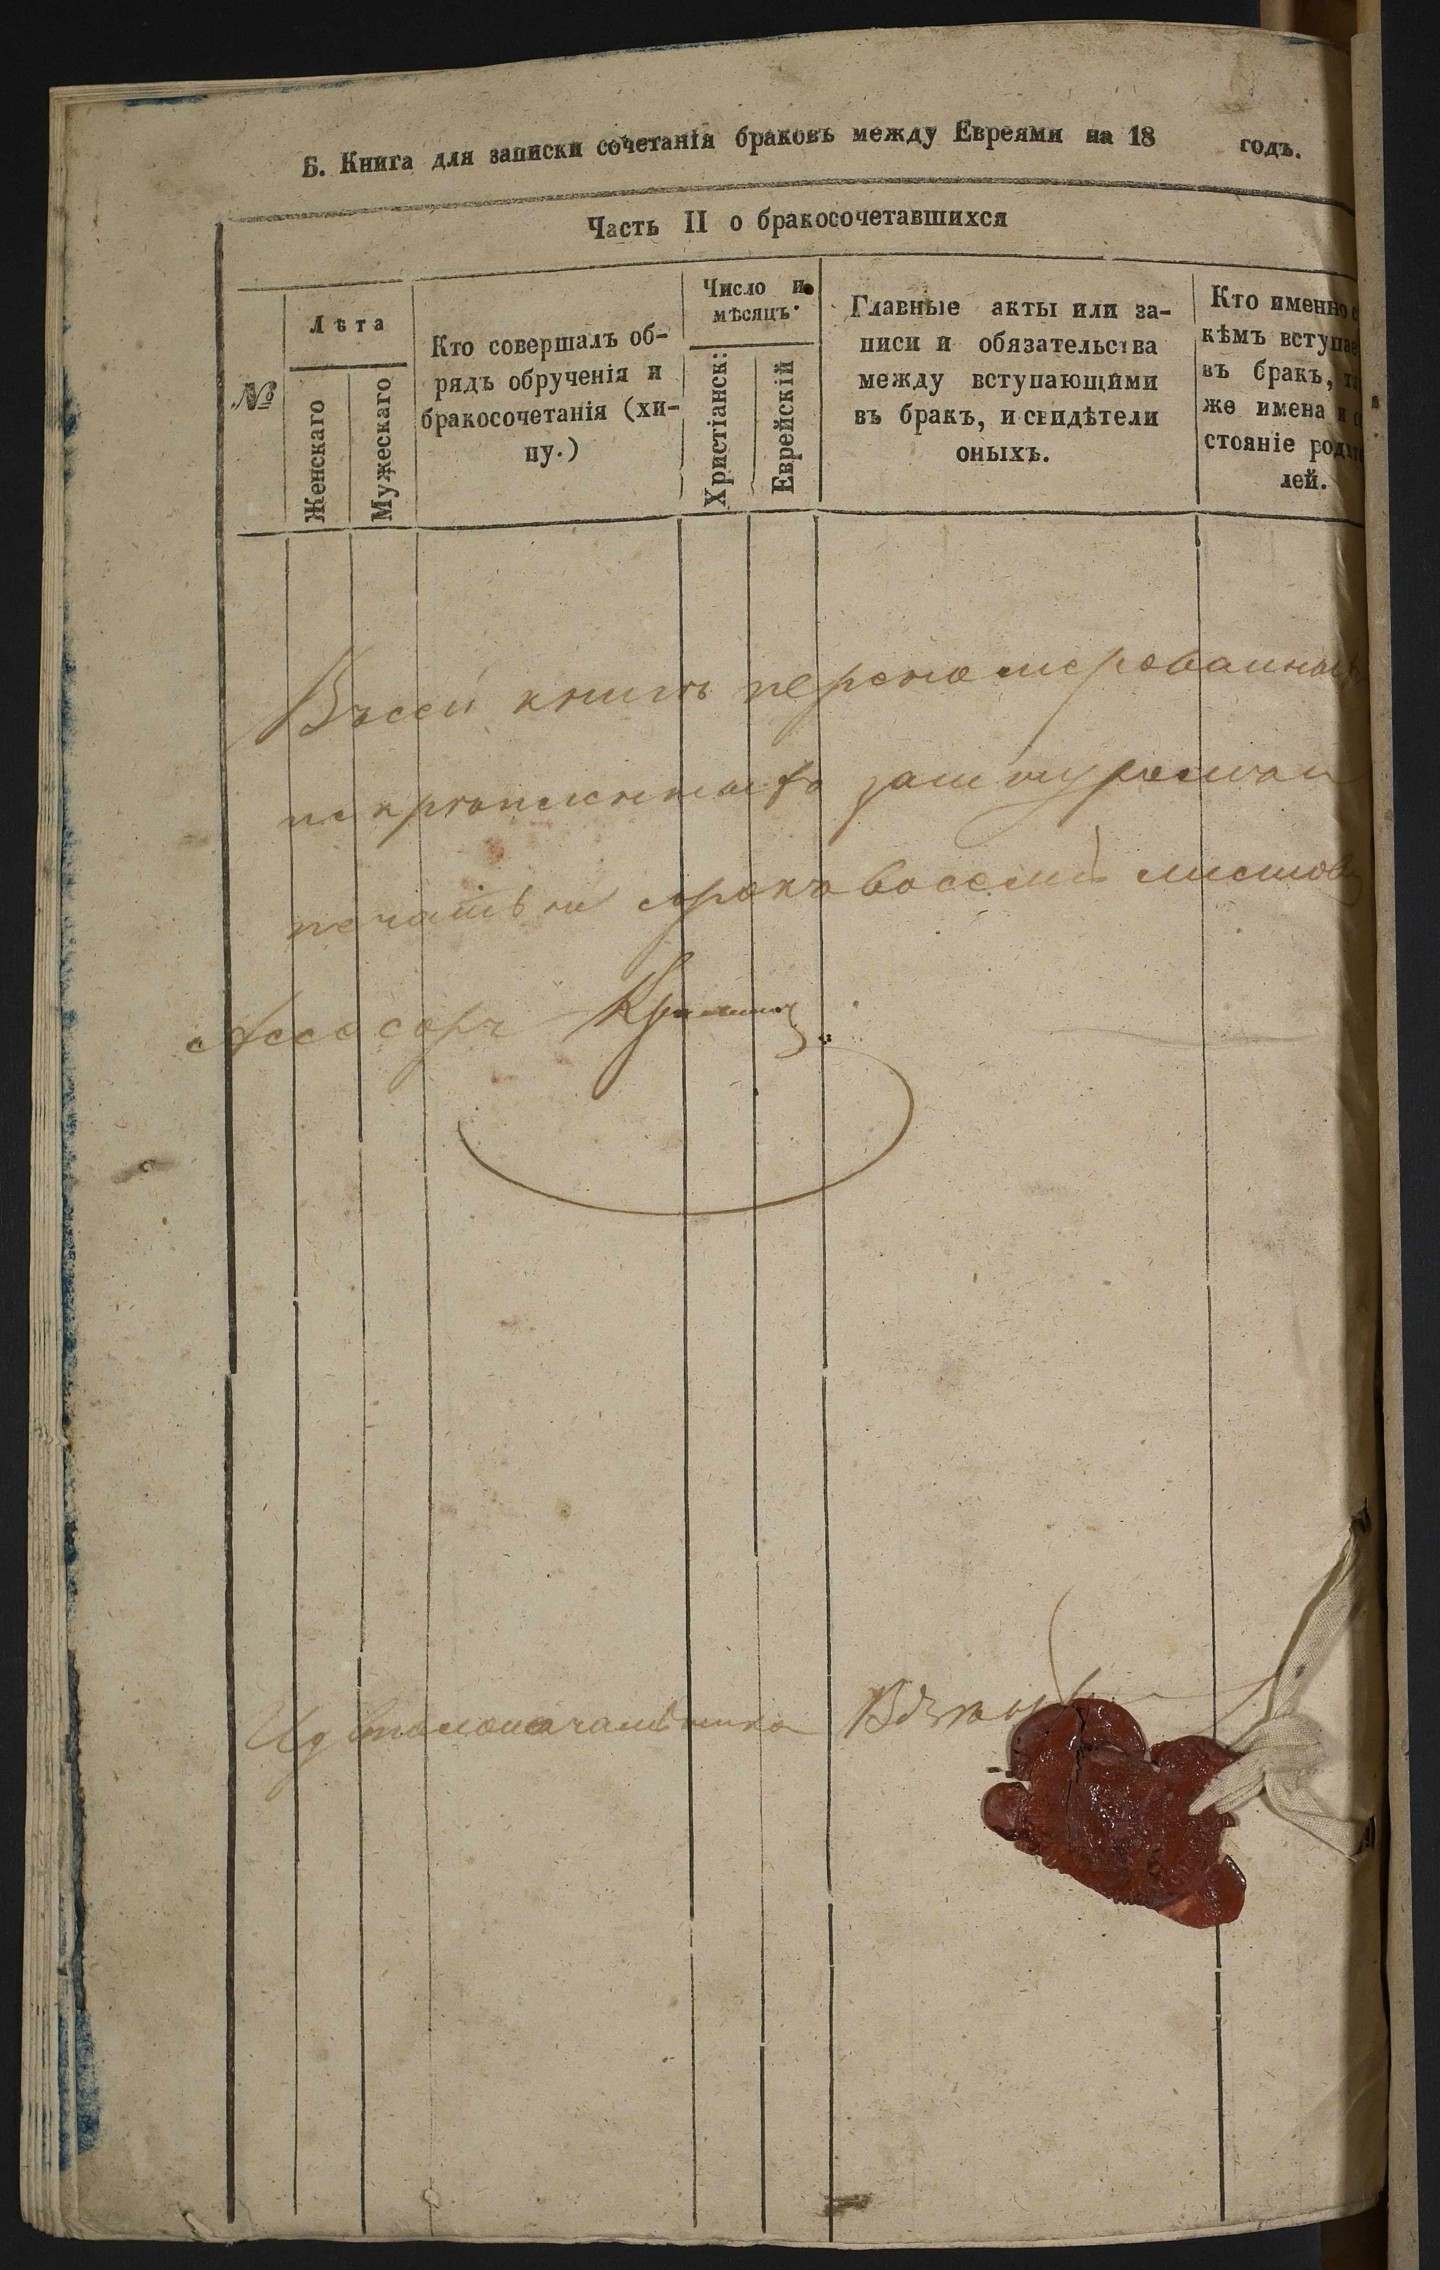 Б. Книга для записки сочетанія браковъ между Евреями на 18 годъ.
Часть II о бракосочетавшихся
№
Лѣта
Женскаго
Мужескаго
Кто совершалъ об-
рядъ обрученія и
бракосочетанія (хи-
пу.)
Число и
мѣсяцъ.
Христіанск:
Еврейскій
Главные акты или за-
писи и обязательства
между вступающими
въ бракъ, и свидѣтели
оныхъ.
Кто именно с
кѣмъ вступае
въ бракъ, та
же имена и со
стояніе родите
лей.
Въсей книгѣ перономерованныхъ
зашнурован
печатью сорокъ восемь листовъ
Ассесоръ
Ид Столоначальника